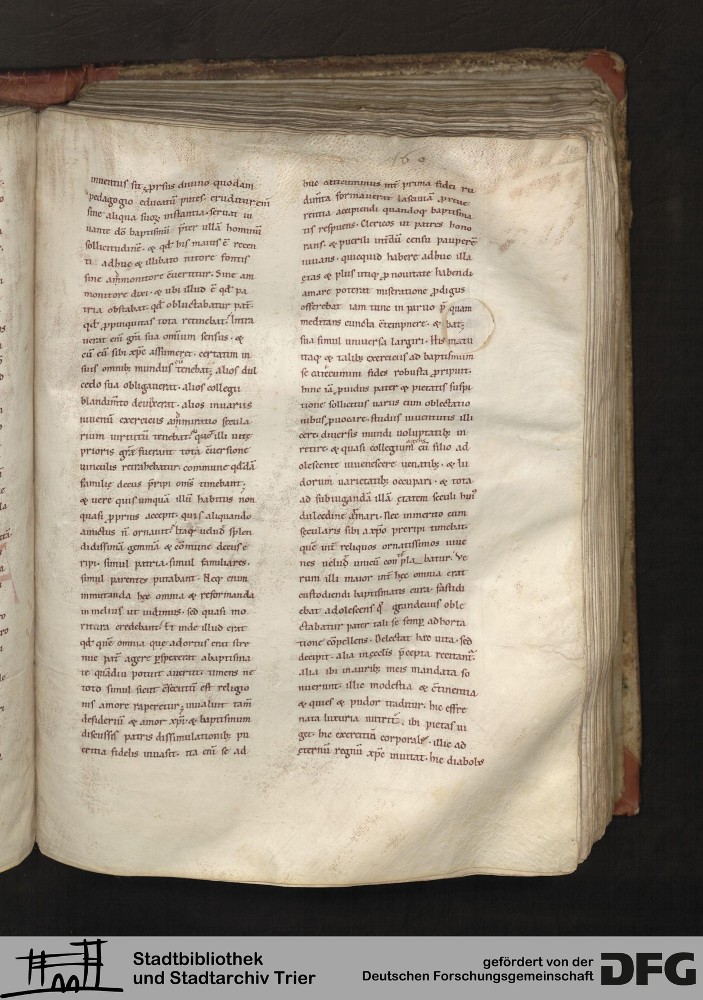 160
inuentus sit. prsus diuino quodam
pedagogio educatū putes. eruditur eni
sine aliqua suoꝝ instantia. seruat iu
uante dō baptismū. pter illā hominū
sollicitudinē. & qd his maius ē recen
ti. adhuc & illibato nitore fontis
sine ammonitore cuertitur. Sine am
monitore dixi. & ubi illud ē qd pa
tria obstabat. qd obluctabatur pat̄.
qd ppinquitas tota retinebat. Intra
uerat eni grā sua omnium sensus. &
cū eū sibi xpc assumeret. certatim in
suis omnib; mundus tenebat; alios dul
cedo sua obligauerat. alios collegii
blandimto deuixerat. alios in uariis
iuuenū exerciciis ammiratio secula
rium uirtutū tenebat. quo illi uitę
prioris grā fuerant tota cuersione
uinculis retrahebatur. commune qddā
familię decus pripi oms timebant.
& uere quis umquā illū habitus non
quasi pprius accepit. quis aliquando
amictus n̄ ornauit. Itaq; uelud splen
didissimā gemmā & cōmune decus e
ripi. simul patria. simul familiares.
simul parentes putabant. Neq; enim
immutanda hęc omnia & reformanda
in melius ut uidimus. sed quasi mo
ritura credebant. Et inde illud erat
qd quē omnia que adortus erat stre
nue pat̄ agere pspexerat a baptisma
te quādiu potuit auertit. timens ne
toto simul sicut csecutū est religio
nis amore raperetur; inualuit tam̄
desideriū & amor xpi. & baptismum
discussis patris dissimulationib; pu
eritia fidelis inuasit. ita eni se ad
huc
prima fidei ru
dimta formauerat lasciuiā. p reue
rentia accipiendi quandoq; baptisma
tis respuens. Clericos ut patres hono
rans. & puerili intdū censu pauperē
iuuans. quicquid habere adhuc illa
ętas & plus utiq; p nouitate habendi
amare poterat miseratione pdigus
offerebat. iam tunc in paruo p quam
meditans cuncta ctempnere. & bat;
sua simul uniuersa largiri. His matu
ritaq; & talib; exerciciis ad baptismum
se catecumini fides robusta pripuit.
hinc iā puidus pater & pietatis suspi
tione sollicitus uariis eum oblectatio
nibus puocare. studiis iuuentutis illi
cere. diuersis mundi uoluptatib; ir
retire. & quasi collegium cū filio ad
olescente iuuenescere. uenatib; & lu
dorum uarietatib; occupari. & tota
ad subiugandā illā ętatem seculi hui
dulcedine armari. Nec inmerito eum
secularis sibi a xpo preripi timebat.
quē int reliquos ornatissimos iuue
nes uelud unicū con pla batur. Ve
rum illa maior int hęc omnia erat
custodiendi baptismatis cura. fastidi
ebat adolescens qs grandeuus oble
ctabatur pater tali se semp adhorta
tione cōpellens. Delectat hęc uita. sed
decipit. alia in cęlis pcepta recitant.
alia ibi in aurib; meis mandata so
nuerunt. illic modestia & ctinentia
& quies & pudor traditur. hic effre
nata luxuria nutrit. ibi pietas ui
get. hic exercitiū corporale. illic ad
eternū regnū xpc inuitat. hic diabolus
Stadtbibliothek
und Stadtarchiv Trier
gefördert von der
Deutschen Forschungsgemeinschaft
DFG